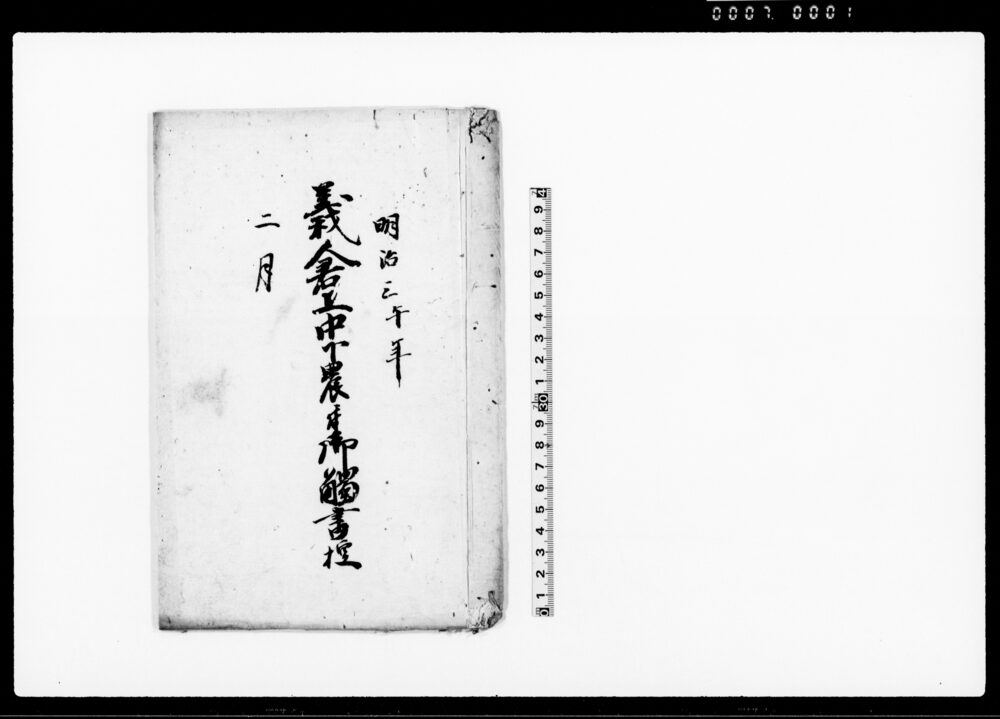 0007 0001
明治三午年
義倉上中下農耒御觸書控
二月
4
9
8
7
6
5
4
3
2
1
30
9
8
7
6
5
4
3
2
1
0